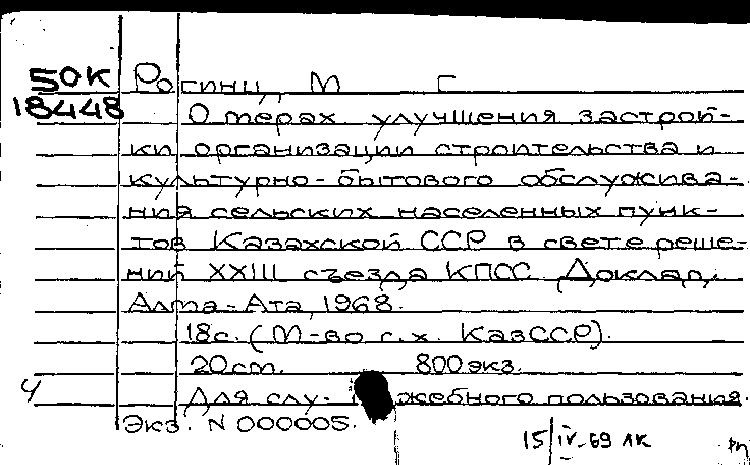 50К Рогинц, М Г
18448 О мерах улучшения застрой-
ки организации строительства и
культурно-бытового обслужива-
ния сельских населенных пунк-
тов Казахской ССР в свете реше-
ний XXIII съезда КПСС. Доклад.
Алма-Ата, 1968.
18с. (М-во с.х. КазССР).
20см. 800экз.
Для слу- жебного пользования.
Экз. N 000005.
15/IV-69 ЛК